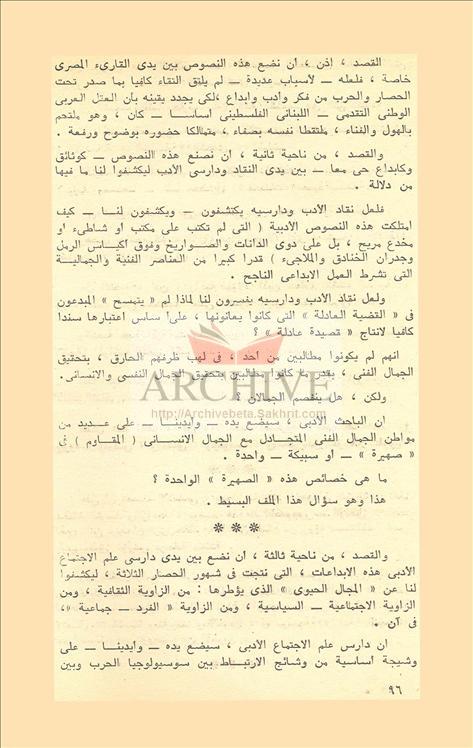 القصد ، إذن ، ان نضع هذه النصوص بين يدى القارىء المصرى
خاصة ، فلعله ــ لأسباب عديدة ــ لم يلتق التقاء كافيا بما صدر تحت
الحصار والحرب من فكر وادب وابداع ،لكى يجدد يقينه بأن العقل العربى
الوطنى التقدمى ــ اللبنانى الفلسطينى أساسا ــ كان ، وهو ملتحم
بالهول والفناء ، ملتقطا نفسه بصفاء ، متمالكا حضوره بوضوح ورفعة .
والقصد ، من ناحية ثانية ، ان نضع هذه النصوص ــ كوثائق
وكابداع حى معا ــ بين يدى النقاد ودارسى الأدب ليكشفوا لنا ما فيها
من دلالة .
فلعل نقاد الأدب ودارسيه يكتشفون ــ ويكشفون لنا ــ كيف
امتلكت هذه النصوص الأدبية ( التى لم تكتب على مكتب او شاطىء او
مخدع مريح ، بل على دوى الدانات والصواريخ وفوق أكياس الرمل
وجدران الخنادق والملاجىء ) قدرا كبيرا من العناصر الفنية والجمالية
التى تشرط العمل الابداعى الناجح .
ولعل نقاد الأدب ودارسيه يفسرون لنا لماذا لم « يتمسح » المبدعون
فى « القضية العادلة » التى كانوا يعانونها ، على أساس اعتبارها سندا
كافيا لانتاج « قصيدة عادلة » ؟
انهم لم يكونوا مطالبين من أحد ، فى لهب ظرفهم الحارق ، بتحقيق
الجمال الفنى ، بقدر ما كانوا مطالبين بتحقيق الجمال النفسى والانسانى.
ولكن ، هل ينفصم الجمالان ؟
ARCHIVE
http://Archivebeta.Sakhrit.com
ان الباحث الأدبى ، سيضع يده ــ وايدينا ــ على عديد من
مواطن الجمال الفنى المتجادل مع الجمال الانسانى ( المقاوم ) فى
« صهيرة » ــ أو سبيكة ــ واحدة .
ما هى خصائص هذه « الصهيرة » الواحدة ؟
هذا وهو سؤال هذا الملف البسيط .
* * *
والقصد ، من ناحية ثالثة ، ان نضع بين يدى دارسى علم الاجتماع
الأدبى هذه الابداعات ، التى نتجت فى شهور الحصار الثلاثة ، ليكشفوا
لنا عن « المجال الحيوى » الذى يؤطرها : من الزاوية الثقافية ، ومن
الزاوية الاجتماعية ــ السياسية ، ومن الزاوية « الفرد ــ جماعية »،
فى آن .
ان دارس علم الاجتماع الأدبى ، سيضع يده ــ وايدينا ــ على
وشيجة أساسية من وشائج الارتباط بين سوسيولوجيا الحرب وبين
٩٦